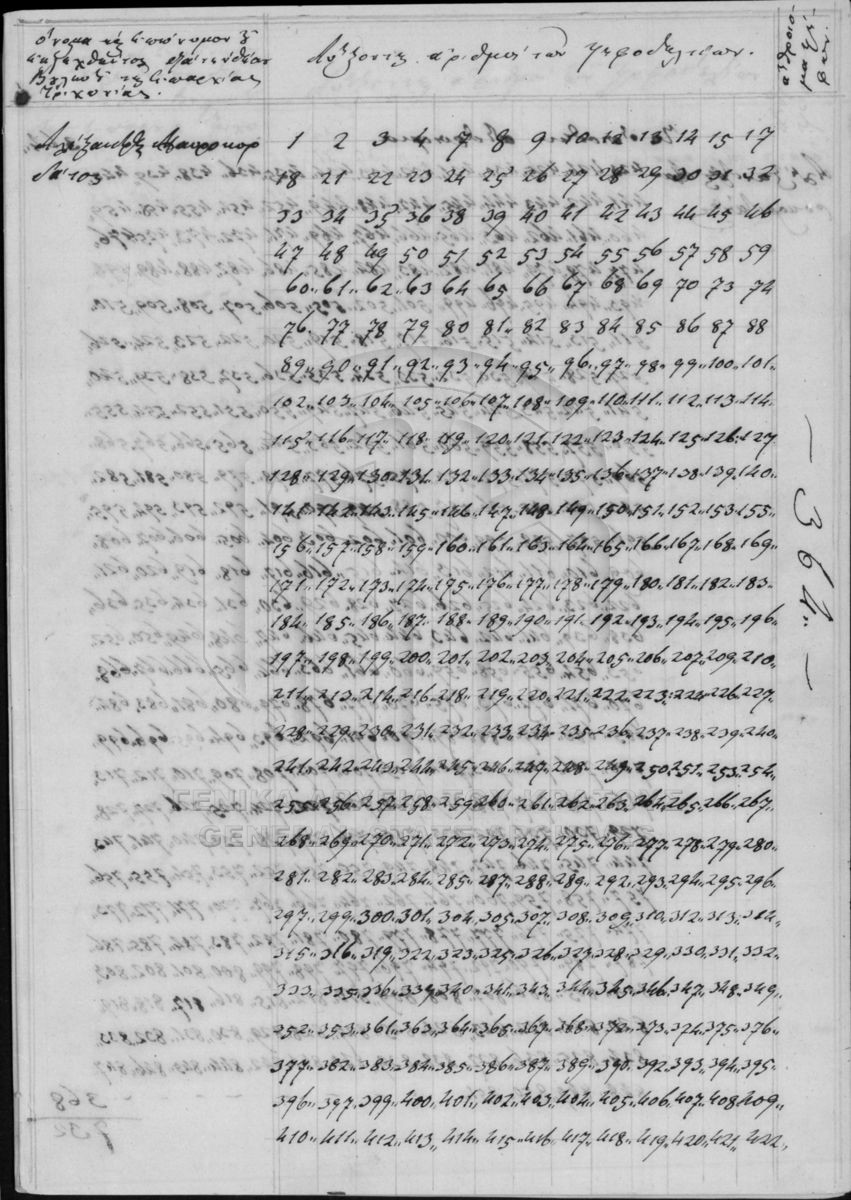 Ὄνομα καὶ ἐπώνυμον τοῦ
ἐκλεχθέντος ἐξ αὐτῶν
Βουλευτοῦ τῆς Ἐπαρχίας
Τριχωνίας.
Αὔξοντες ἀριθμοὶ τῶν ψηφοδελτίων.
ἄθροισμα
Ἀλέξανδρος Μαυροκορ
δάτος
1 2 3 4 7 8 9 10 12 13 14 15 17
18 21 22 23 24 25 26 27 28 29 30 31 32
33 34 35 36 38 39 40 41 42 43 44 45 46
47 48 49 50 51 52 53 54 55 56 57 58 59
60 61 62 63 64 65 66 67 68 69 70 73 74
76 77 78 79 80 81 82 83 84 85 86 87 88
89 90 91 92 93 94 95 96 97 98 99 100 101
102 103 104 105 106 107 108 109 110 111 112 113 114
115 116 117 118 119 120 121 122 123 124 125 126 127
128 129 130 131 132 133 134 135 136 137 138 139 140
141 142 143 145 146 147 148 149 150 151 152 153 155
156 157 158 159 160 161 163 164 165 166 167 168 169
171 172 173 174 175 176 177 178 179 180 181 182 183
184 185 186 187 188 189 190 191 192 193 194 195 196
197 198 199 200 201 202 203 204 205 206 207 209 210
211 213 214 216 218 219 220 221 222 223 224 226 227
228 229 230 231 232 233 234 235 236 237 238 239 240
241 242 243 244 245 246 247 248 249 250 251 253 254
255 256 257 258 259 260 261 262 263 264 265 266 267
268 269 270 271 272 273 274 275 276 277 278 279 280
281 282 283 284 285 287 288 289 292 293 294 295 296
297 299 300 301 304 305 307 308 309 310 312 313 314
315 316 319 322 323 325 326 327 328 329 330 331 332
333 335 336 339 340 341 343 344 345 346 347 348 349
352 353 361 363 364 365 367 368 372 373 374 375 376
377 382 383 384 385 386 387 389 390 392 393 394 395
396 397 399 400 401 402 403 404 405 406 407 408 409
410 411 412 413 414 415 416 417 418 419 420 421 422
— 364 —